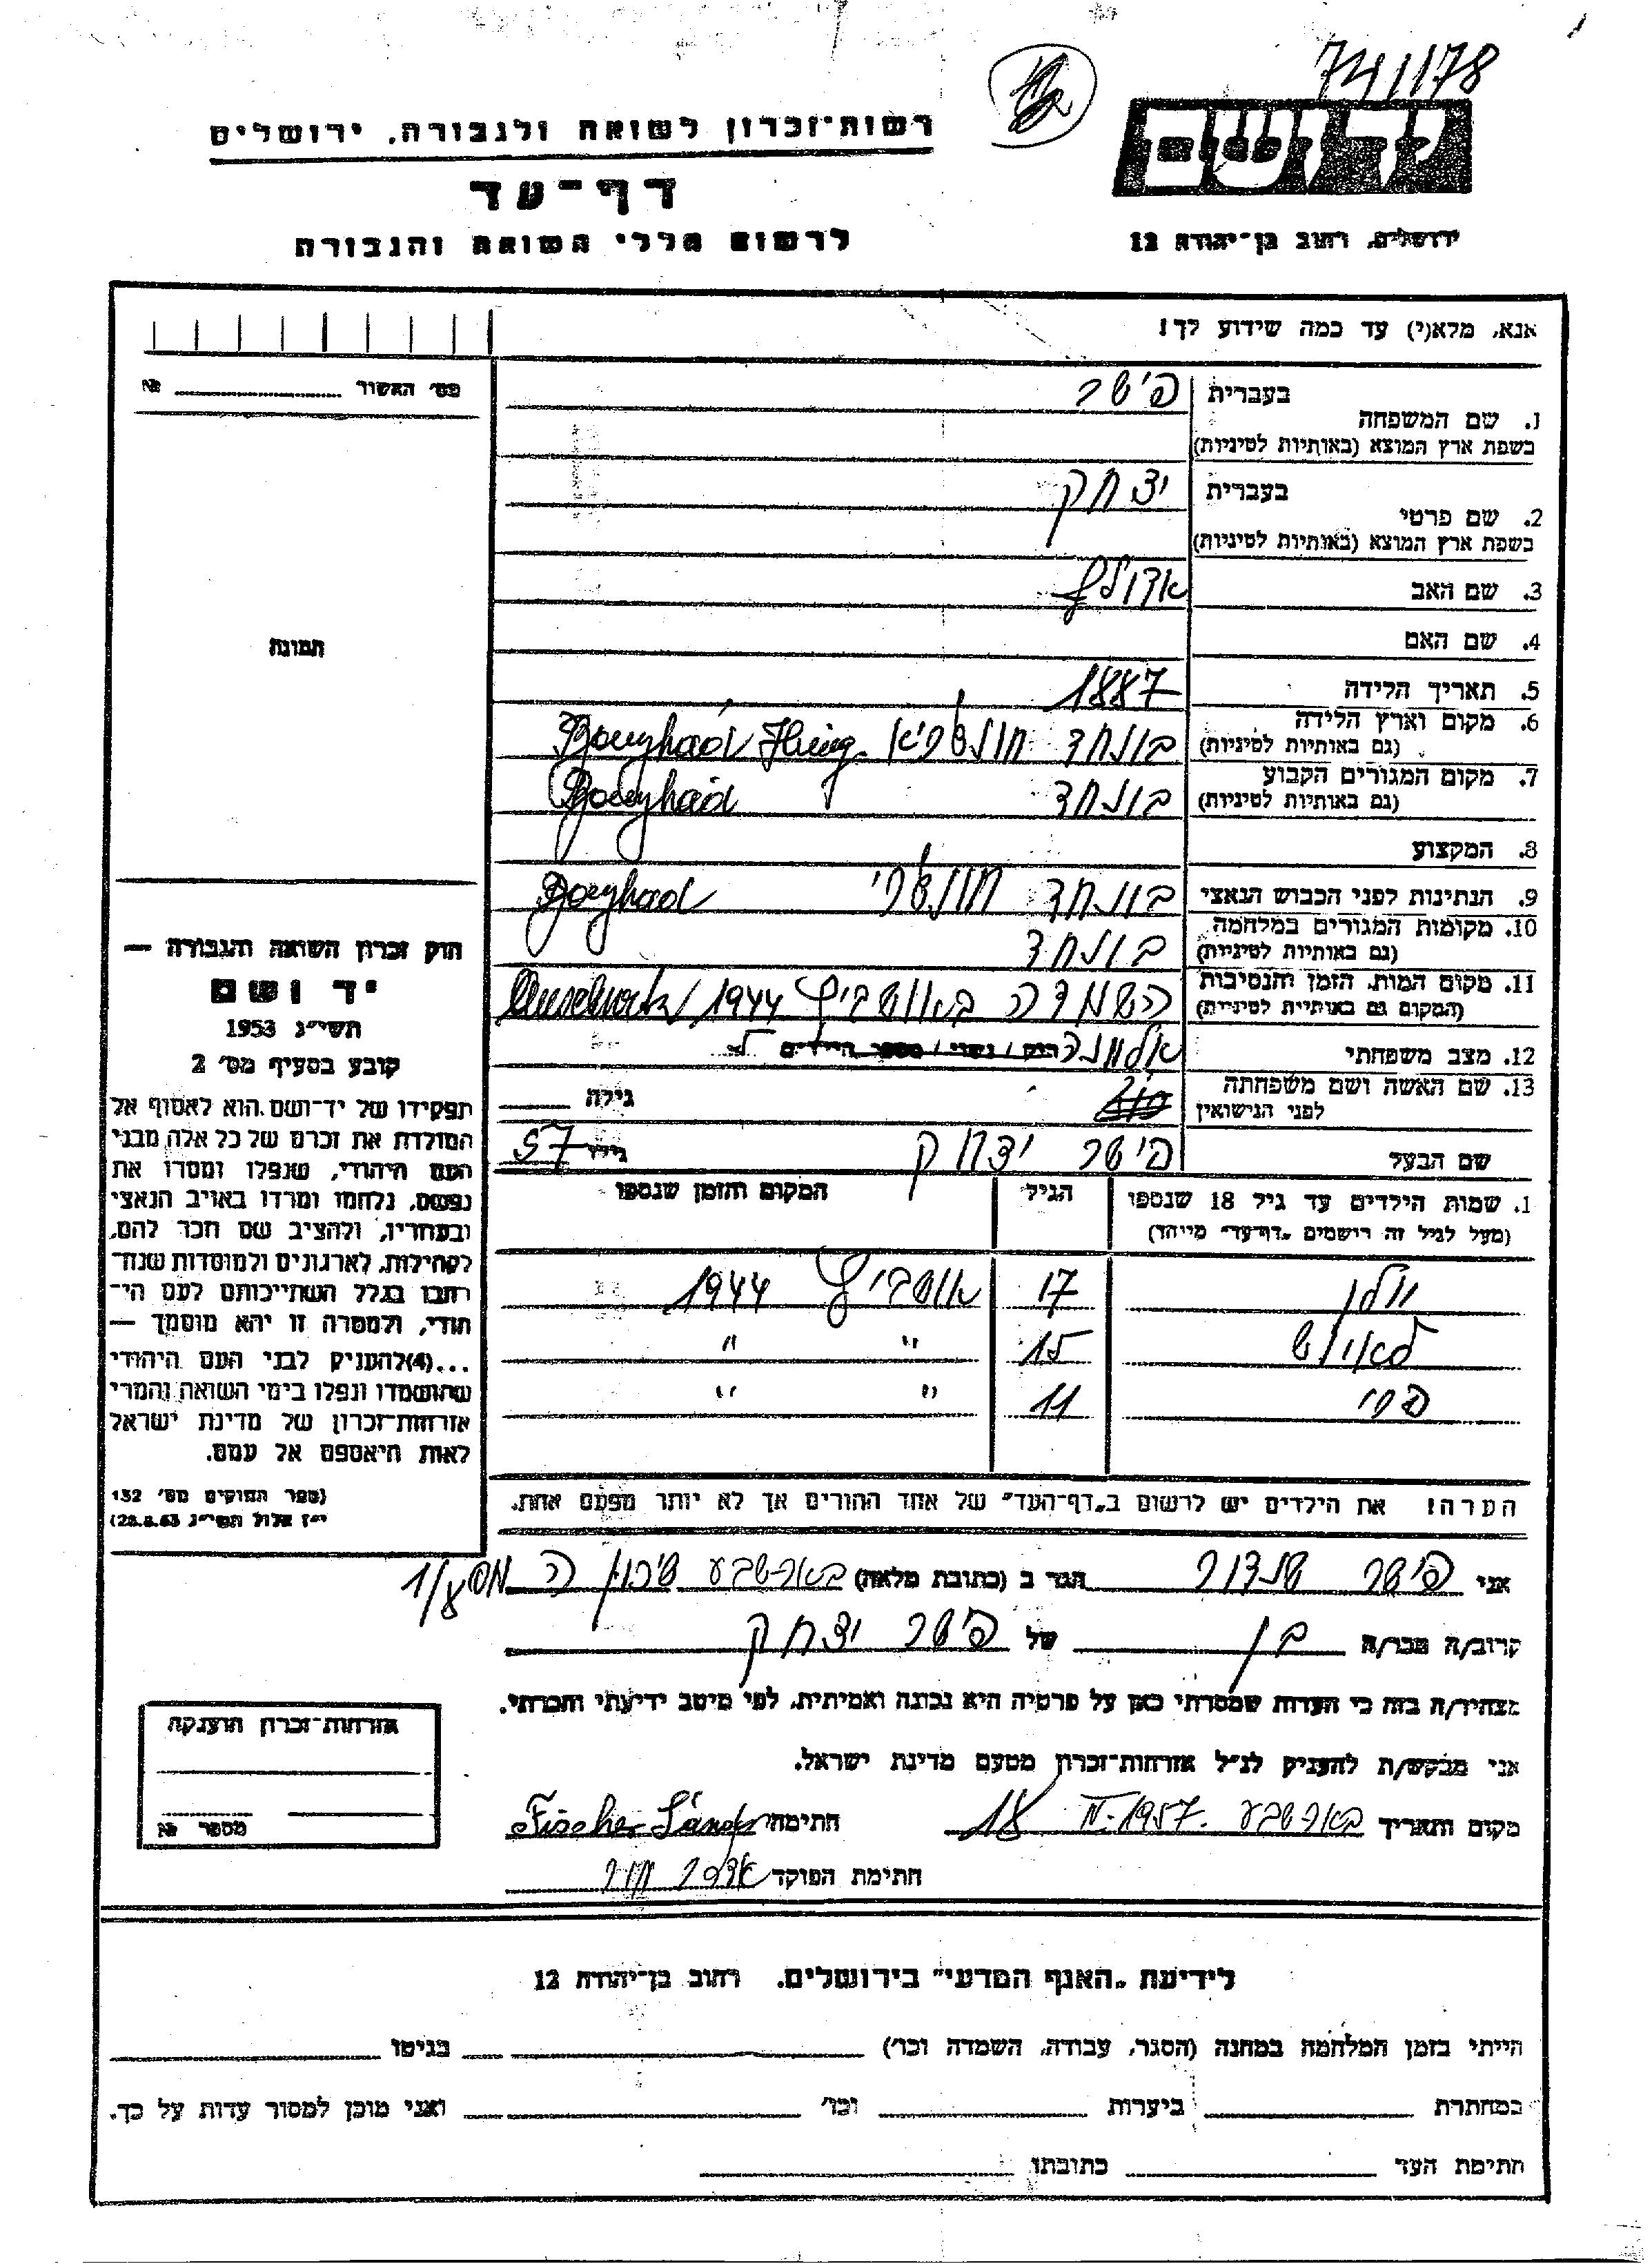 741178
יד ושם
רשות-זכרון לשואה ולגבורה, ירושלים
דף-עד
לרשום חללי השואה והגבורה
ירושלים, רחוב בן-יהודה 12
אנא, מלא(י) עד כמה שידוע לך!
מס' האשור № 
בעברית פישר
1. שם המשפחה
בשפת ארץ המוצא (באותיות לטיניות)
בעברית יצחק
2. שם פרטי
בשפת ארץ המוצא (באותיות לטיניות)
3. שם האב אדולף
4. שם האם
תמונה
5. תאריך הלידה 1887
6. מקום וארץ הלידה
(גם באותיות לטיניות) בונהד Bonyhád Hung.
7. מקום המגורים הקבוע
(גם באותיות לטיניות) בונהד Bonyhád
8. המקצוע
9. הנתינות לפני הכבוש הנאצי בונהד הונגרי Bonyhad
10. מקומות המגורים במלחמה
(גם באותיות לטיניות) בונהד
11. מקום המות, הזמן והנסיבות
(המקום גם באותיות לטיניות) השמדה באושביץ 1944
12. מצב משפחתי רוק / נשוי / מספר הילדים
13. שם האשה ושם משפחתה
לפני הנישואין גילה
שם הבעל פישר יצחק גילו 57
1. שמות הילדים עד גיל 18 שנספו הגיל המקום והזמן שנספו
(מעל לגיל זה רישמים „דף-עד" מיוחד)
17 אושביץ 1944
15 " "
11 " "
הערה! את הילדים יש לרשום ב„דף-העד" של אחד ההורים אך לא יותר מפעם אחת.
חוק זכרון השואה והגבורה —
יד ושם
תשי"ג 1953
קובע בסעיף מס' 2
תפקידו של יד-ושם הוא לאסוף אל
המולדת את זכרם של כל אלה מבני
העם היהודי, שנפלו ומסרו את
נפשם, נלחמו ומרדו באויב הנאצי
ובעוזריו, ולהציב שם וזכר להם,
לקהילות, לארגונים ולמוסדות שנח-
רבו בגלל השתייכותם לעם הי-
הודי, ולמטרה זו יהא מוסמך —
...(4) להעניק לבני העם היהודי
שהושמדו ונפלו בימי השואה והמרי
אזרחות-זכרון של מדינת ישראל
לאות היאספם אל עמם.
(ספר החוקים מס' 132
י"ז אלול תשי"ג 28.8.53)
אני פישר שנדור הגר ב (כתובת מלאה) באר-שבע שיכון ה
קרוב/ה מכר/ה בן של פישר יצחק
מצהיר/ה בזה כי העדות שמסרתי כאן על פרטיה היא נכונה ואמיתית, לפי מיטב ידיעתי והכרתי.
אני מבקש/ת להעניק לנ"ל אזרחות-זכרון מטעם מדינת ישראל.
מקום ותאריך באר-שבע 18 1957. חתימה Fischer Sándor
חתימת הפוקד
אזרחות-זכרון הוענקה
מספר №
לידיעת „האגף המדעי" בירושלים, רחוב בן-יהודה 12
הייתי בזמן המלחמה במחנה (הסגר, עבודה, השמדה וכו') בגיטו
במחתרת ביערות וכו' ואני מוכן למסור עדות על כך.
חתימת העד כתובתו